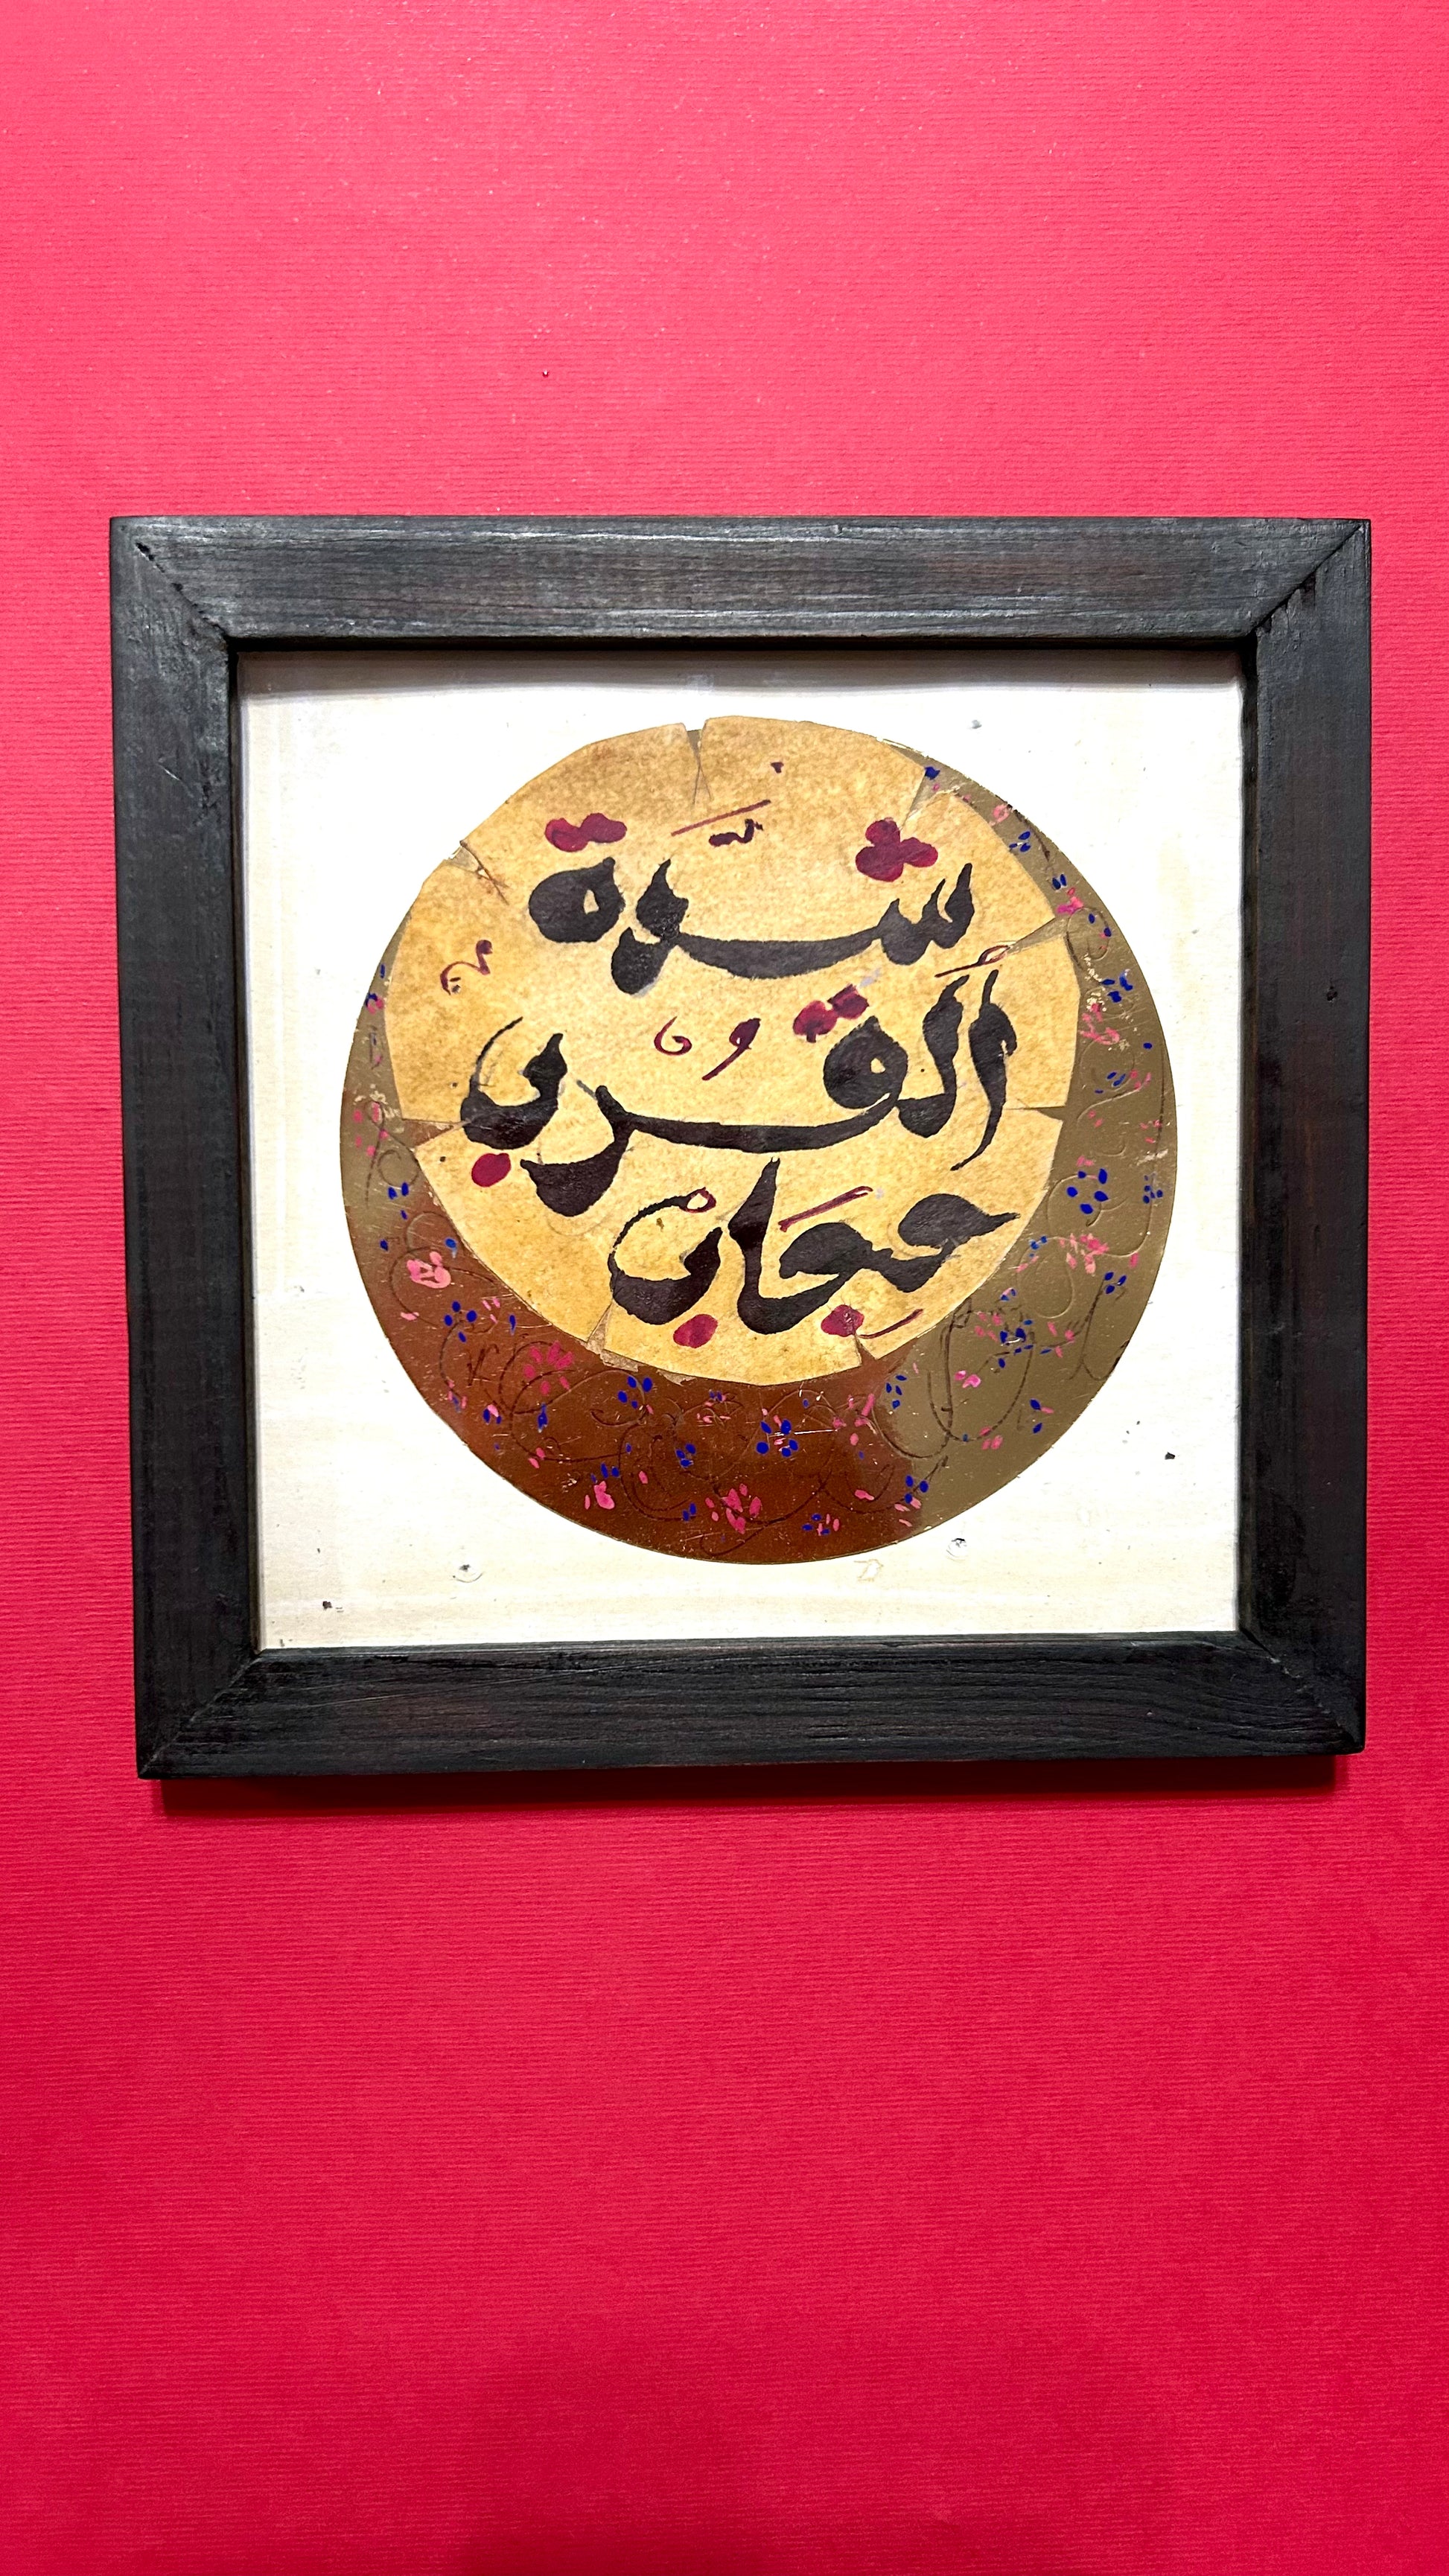 شدّة
القرب
حجاب